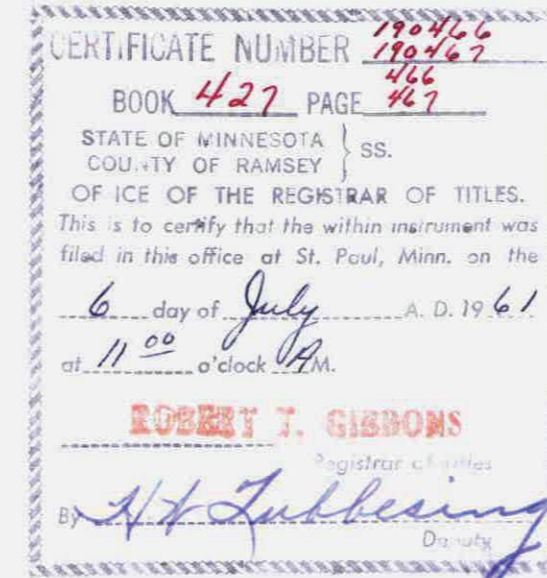 CERTIFICATE NUMBER 190466
190467
BOOK 427 PAGE 466
467
STATE OF MINNESOTA } SS.
COUNTY OF RAMSEY
OFFICE OF THE REGISTRAR OF TITLES.
This is to certify that the within instrument was
filed in this office at St. Paul, Minn. on the
6 day of July A. D. 1961
at 11 00 o'clock AM.
ROBERT T. GIBBONS
Registrar of Titles
By H W Lubbesing
Deputy